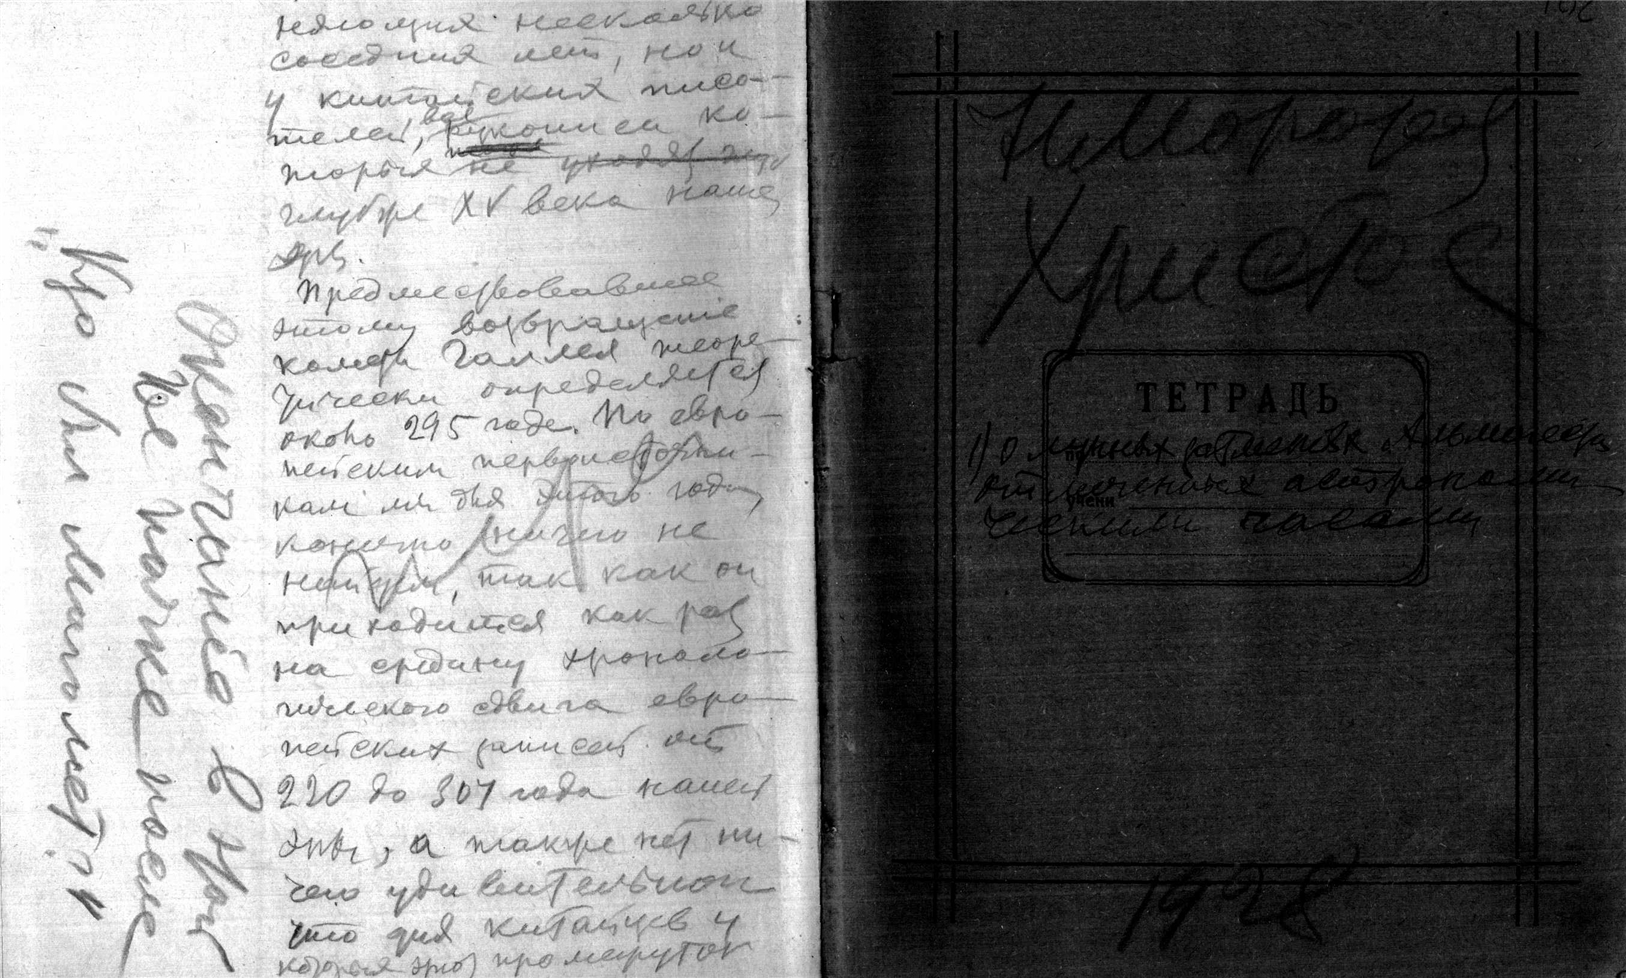 няющия несколько
соседния лет, но и
у китайских писа-
телей, все рукописи ко-
торых не уходят
глубже XV века нашей
эры.
Предшествовавшее
этому возвращение
кометы Галлея теоре-
тически определяется
около 295 года. По евро-
пейским первоисточни-
кам мы для этого года
конечно ничего не
найдем, так как он
приходится как раз
на средину хроноло-
гического сдвига евро-
пейских записей от
220 до 307 года нашей
эры, а также нет ни-
чего удивительного
что для китайцев у
которых этот промежуток
Окончание в той
же пачке после
„Кто был Магомет?"
Н. Морозов
Христос
ТЕТРАДЬ
1) О лунных затмениях Альмагеста
отмеченных астрономи-
ческими часами
учени
1928